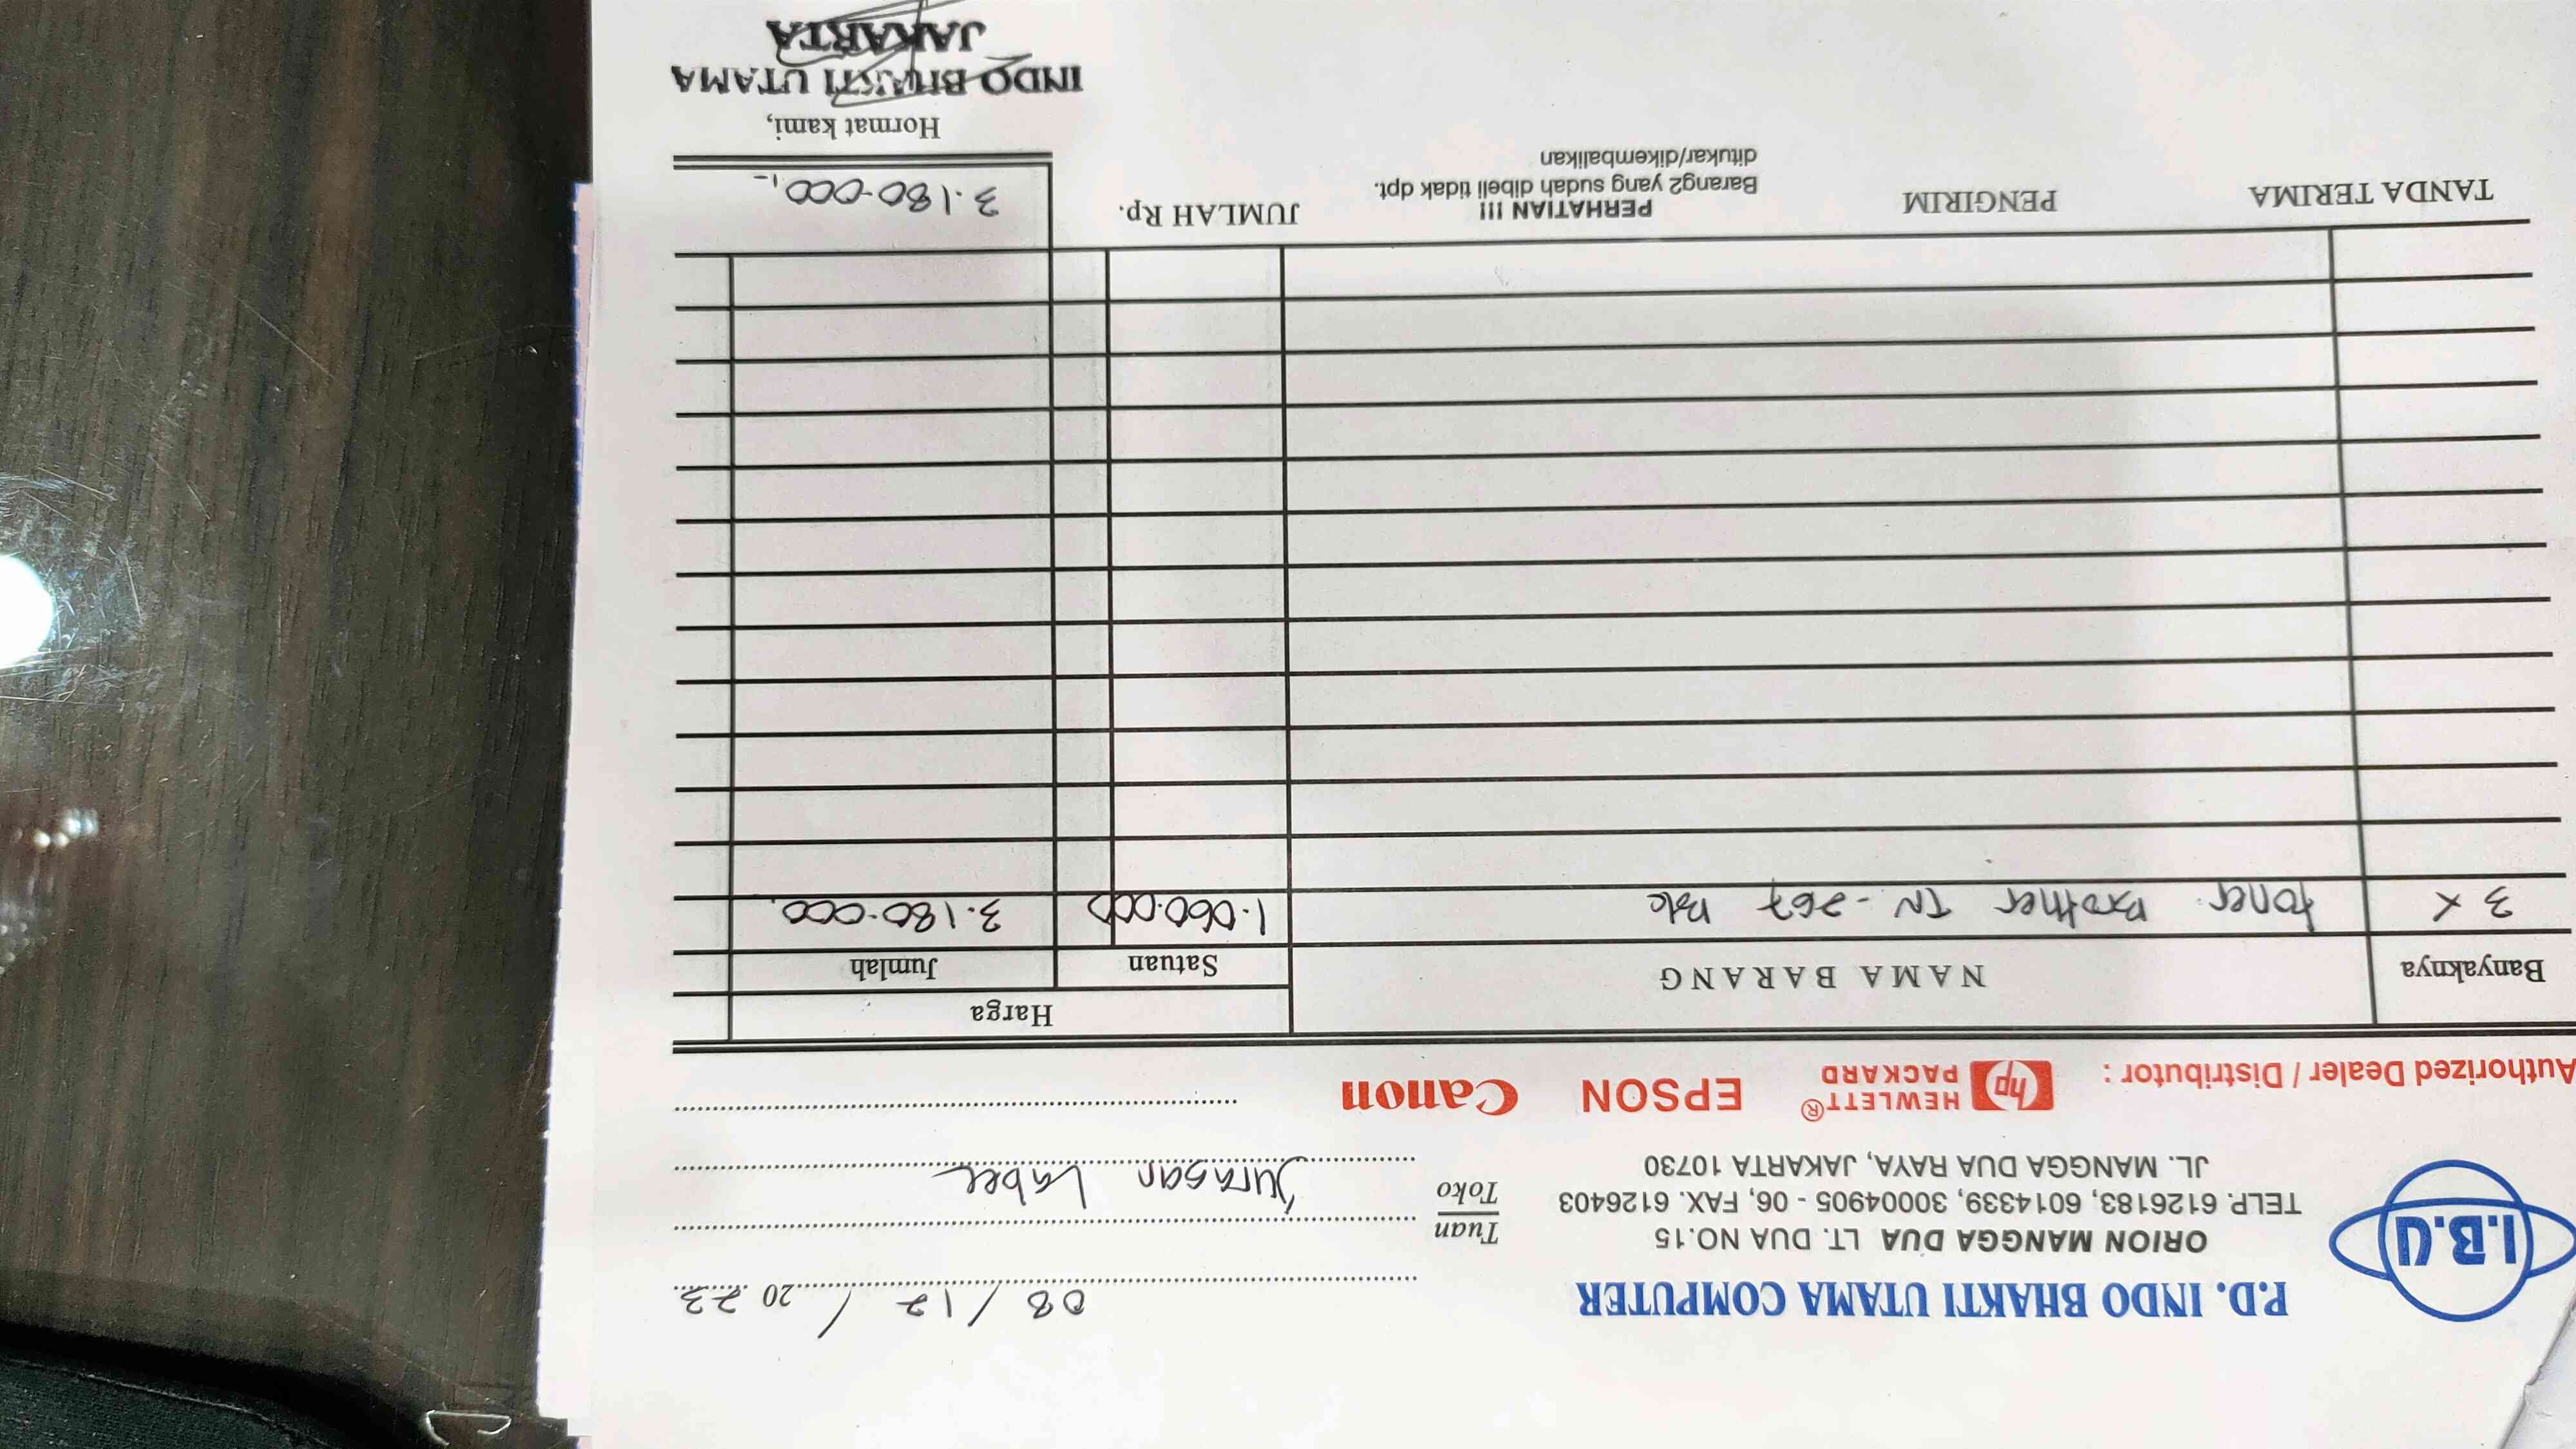 I.B.U
P.D. INDO BHAKTI UTAMA COMPUTER
ORION MANGGA DUA LT. DUA NO.15
TELP. 6126183, 6014339, 30004905 - 06, FAX. 6126403
JL. MANGGA DUA RAYA, JAKARTA 10730
08 / 12 / 20 23
Tuan
Toko
Juragan Label
Authorized Dealer / Distributor : hp HEWLETT® PACKARD EPSON Canon
Banyaknya NAMA BARANG Harga
Satuan Jumlah
3 x toner Brother TN - 267 1.060.000 3.180.000
TANDA TERIMA PENGIRIM
PERHATIAN !!!
Barang2 yang sudah dibeli tidak dpt.
ditukar/dikembalikan
JUMLAH Rp. 3.180.000,-
Hormat kami,
INDO BHAKTI UTAMA
JAKARTA